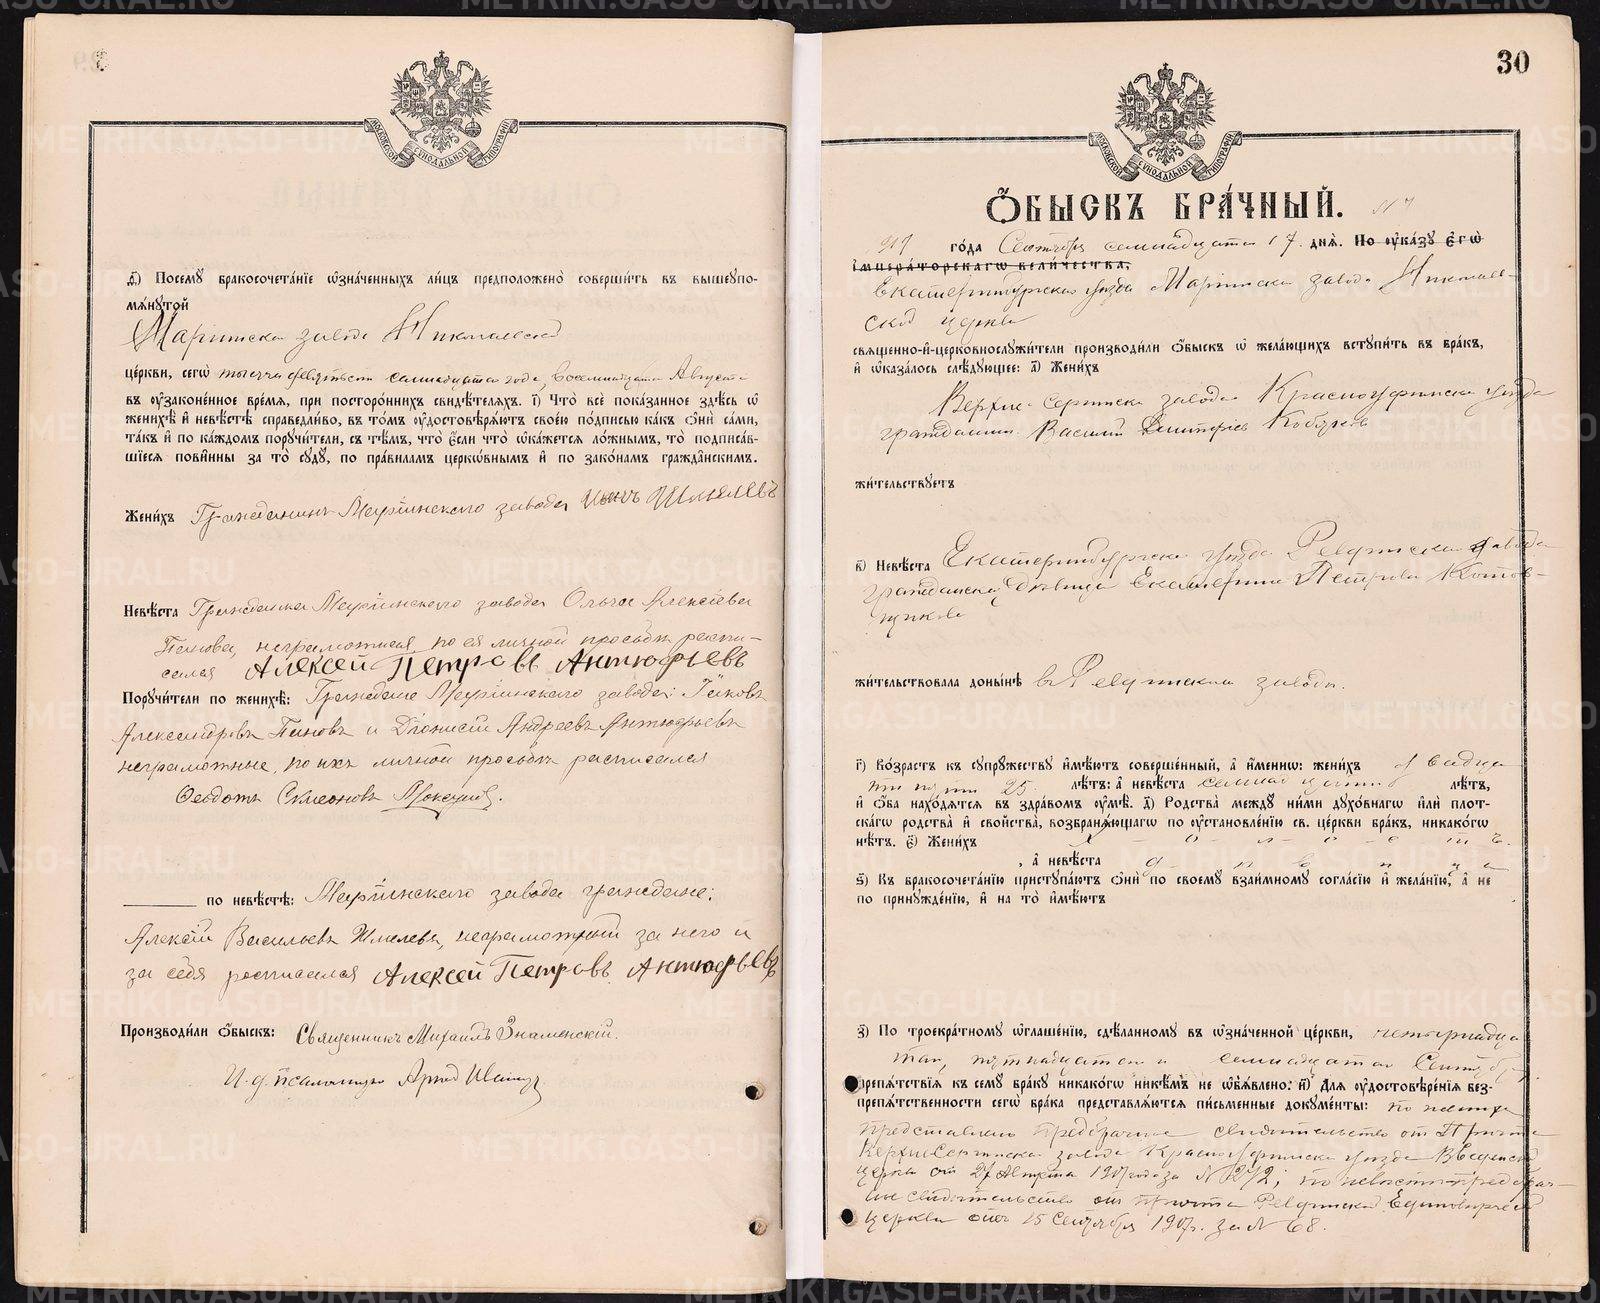 МОСКОВСКОЙ СѴНОДАЛЬНОЙ ТИПОГРАФІИ
ѕ) Посемꙋ бракосочета́нїе ѡ҆зна́ченныхъ ли́цъ предположено̀ соверши́ть въ вышеупо-
мѧ́нꙋтой
Маріинскаго завода Николаевской
це́ркви, сегѡ̀ тысяча девятьсот семнадцатаго года, восемнадцатаго Августа
въ ᲂу҆зако́ненное вре́мѧ, при посторо́ннихъ свидѣ́телѧхъ. і҃) Что̀ всѐ пока́занное здѣ́сь ѡ҆
женихѣ̀ и҆ невѣ́стѣ справедли́во, въ то́мъ ᲂу҆достовѣрѧ́ютъ свое́ю по́дписью ка́къ ѻ҆нѝ са́ми,
та́къ и҆ по ка́ждомъ порꙋчи́тели, съ тѣ́мъ, что̀ є҆́сли что̀ ѡ҆ка́жетсѧ ло́жнымъ, то̀ подписа́в-
шїесѧ пови́нны за то̀ сꙋдꙋ̀, по пра́виламъ церкѡ́внымъ и҆ по зако́намъ гражда́нскимъ.
Жени́хъ Гражданинъ Маріинскаго завода Шмелевъ
Невѣ́ста Гражданка Маріинскаго завода Ольга Алексіева
Панова, неграмотная, по ея личной просьбѣ распи-
сался Алексей Петровъ Антюфьевъ
Порꙋчи́тели по женихѣ̀: Граждане Маріинскаго завода: Іаковъ
Александровъ Пановъ и Діонисій Андреевъ Антюфьевъ
неграмотные, по ихъ личной просьбѣ расписался
Ѳеодотъ Симеоновъ
по невѣ́стѣ: Маріинскаго завода граждане:
Алексій Васильевъ Шмелевъ, неграмотный за него и
за себя росписался Алексей Петровъ Антюфьевъ
Производи́ли ѻ҆́быскъ: Священникъ Михаилъ Знаменскій.
И. д. псаломщика
30
МОСКОВСКОЙ СѴНОДАЛЬНОЙ ТИПОГРАФІИ
Ѻ҆́БЫСКЪ БРА́ЧНЫЙ.
917 го́да Сентября семнадцатаго 17 днѧ̀. По ᲂу҆ка́зꙋ є҆гѡ̀
и҆мпера́торскагѡ вели́чества,
Екатеринбургскаго уѣзда Маріинскаго завода Николаев-
ской церкви
свѧще́нно-и҆-церковнослꙋжи́тели производи́ли ѻ҆́быскъ ѡ҆ жела́ющихъ встꙋпи́ть въ бра́къ,
и҆ ѡ҆каза́лось слѣ́дꙋющее: а҃) Жени́хъ
Верхне-Сергинскаго завода Красноуфимскаго уѣзда
гражданин Василий Димитриев Кобяков
жи́тельствꙋетъ
в҃) Невѣ́ста Екатеринбургскаго уѣзда Ревдинскаго завода
гражданская дѣвица Екатерина Петрова Котов-
щикова
жи́тельствовала доны́нѣ в Ревдинском заводѣ.
г҃) Во́зрастъ къ сꙋпрꙋ́жествꙋ и҆мѣ́ютъ соверше́нный, а҆ и҆́менно: жени́хъ двадца
ти пяти 25 лѣ́тъ: а҆ невѣ́ста семнадцати лѣ́тъ,
и҆ ѻ҆́ба нахо́дѧтсѧ въ здра́вомъ ᲂу҆мѣ̀. д҃) Родства̀ междꙋ ни́ми дꙋхо́внагѡ и҆лѝ плот-
ска́гѡ родства̀ и҆ сво́йства, возбранѧ́ющагѡ по ᲂу҆становле́нїю св. це́ркви бра́къ, никако́гѡ
нѣ́тъ. є҃) Жени́хъ холостъ
, а҆ невѣ́ста дѣвица
ѕ҃) Къ бракосочета́нїю пристꙋпа́ютъ ѻ҆нѝ по своемꙋ̀ взаи́мномꙋ согла́сїю и҆ жела́нїю, а҆ не
по принꙋжде́нїю, и҆ на то̀ и҆мѣ́ютъ
з҃) По троекра́тномꙋ ѡ҆глаше́нїю, сдѣ́ланномꙋ въ ѡ҆зна́ченной це́ркви, четырнадца
таго, пятнадцатаго и семнадцатаго Сентября
препѧ́тствїѧ къ семꙋ̀ бра́кꙋ никако́гѡ никѣ́мъ не ѡ҆б̾ѧ́влено: и҃) Для ᲂу҆достовѣре́нїѧ без-
препѧ́тственности сегѡ̀ бра́ка представлѧ́ютсѧ пи́сьменные докꙋме́нты: по женихѣ
представлено предбрачное свидѣтельство от Причта
Верхне-Сергинскаго завода Красноуфимскаго уѣзда Введенской
церкви от 27 Августа 1917 года за № 272; по невѣсте предбрач-
ное свидѣтельство от причта Ревдинской Единовѣрческой
церкви отъ 15 Сентября 1917 г. за № 68.